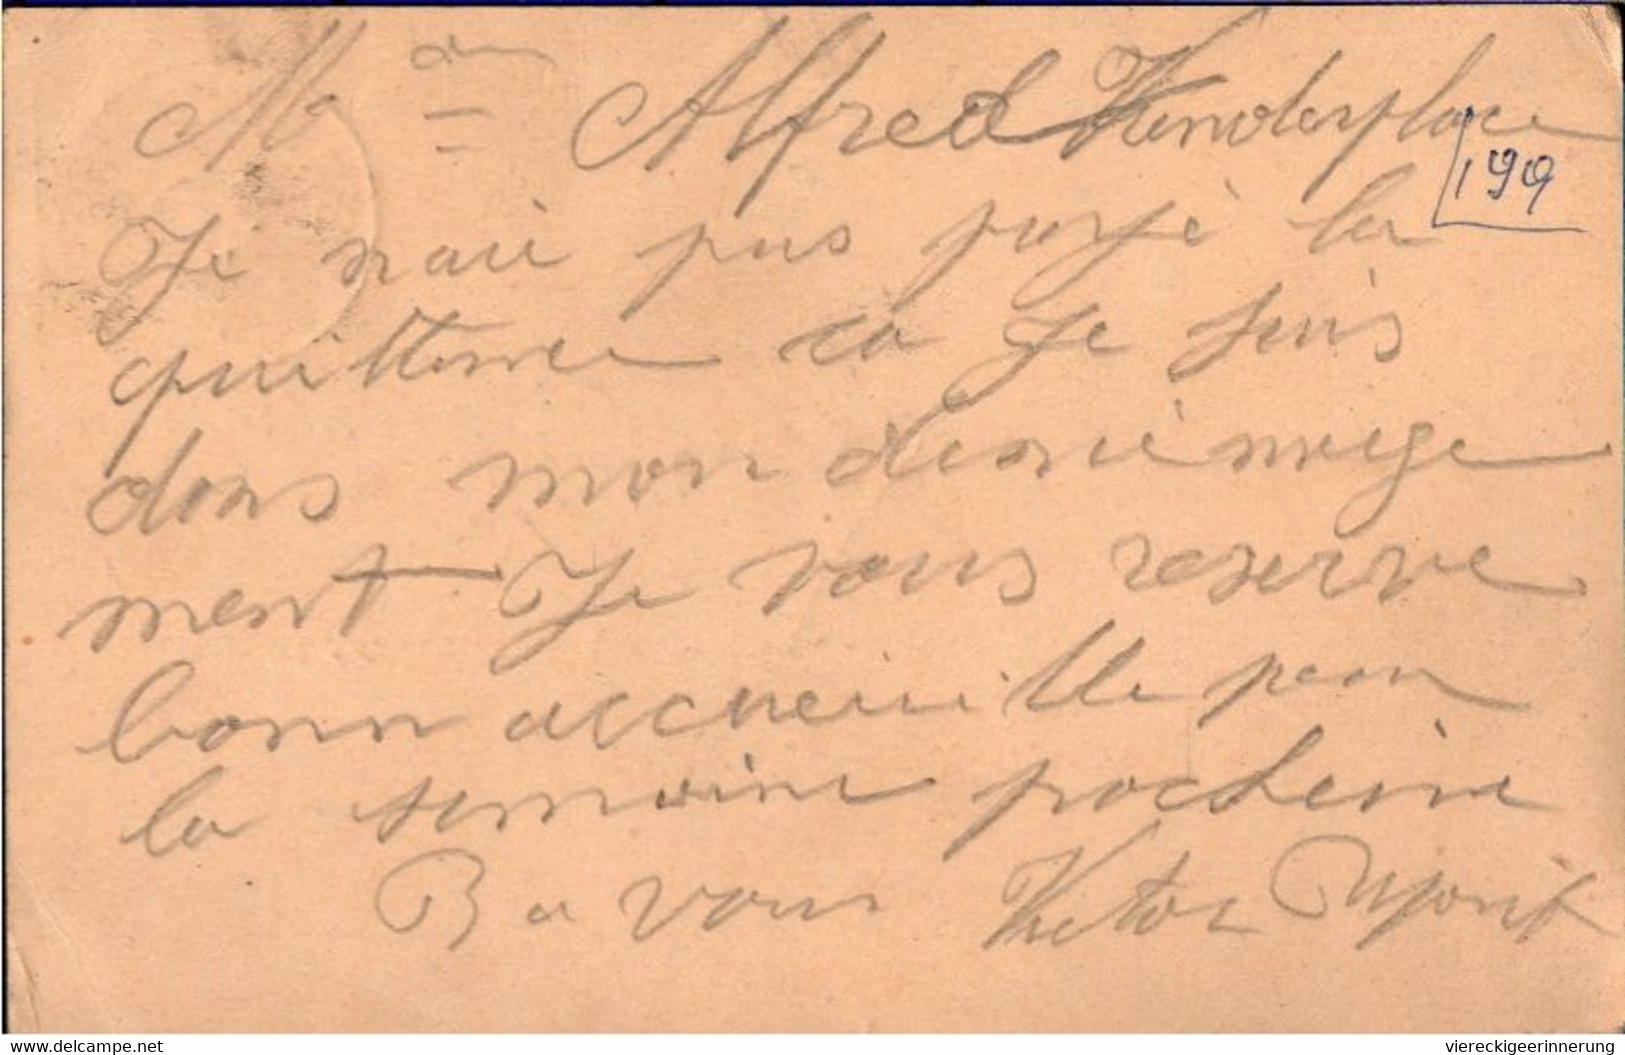 Alfred Vanderplace
199
Je naie pas payé la
quittence ca Je suis
dans mon deménage
ment Je vous reserve
bonn accueuille pour
la semaine prochaine
B a vous Victor Dupont
delcampe.net
viereckigeerinnerung